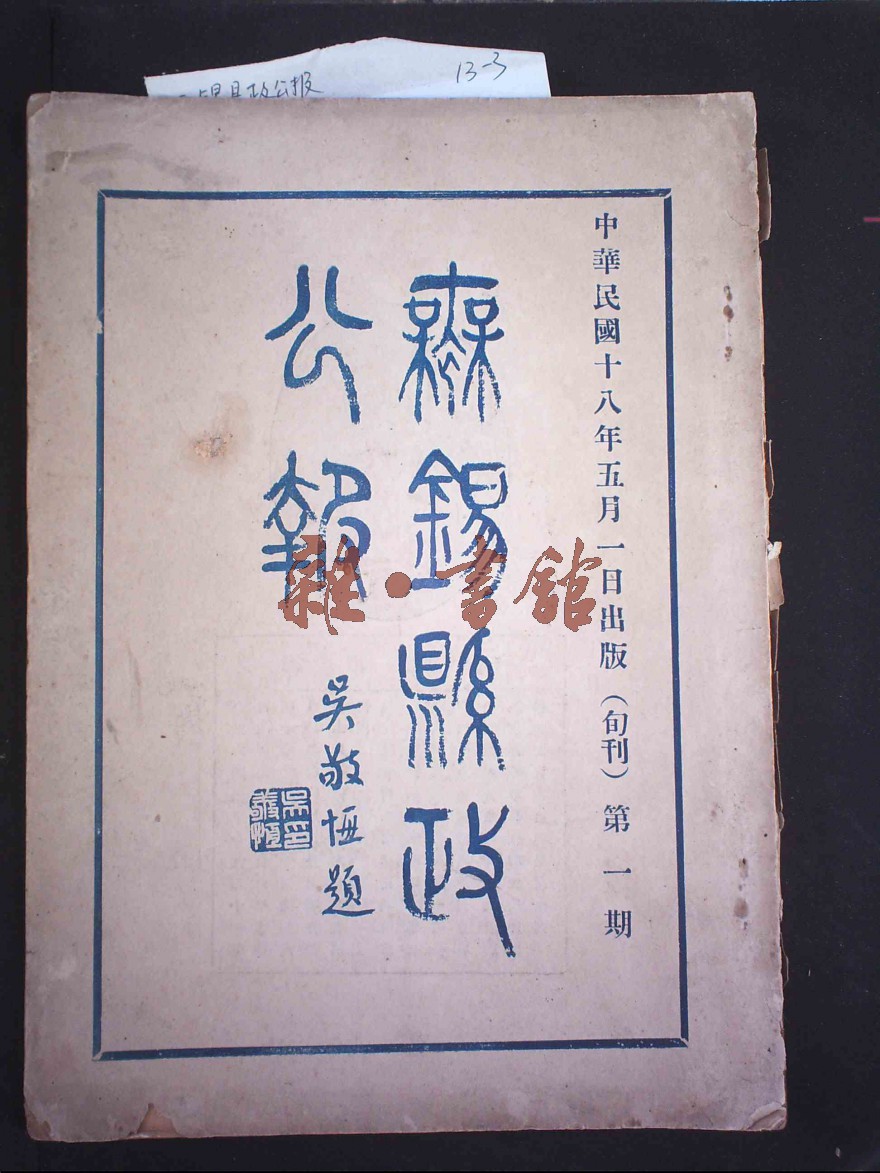 县政公报
13-3
中華民國十八年五月一日出版（旬刊）第一期
無錫縣政
公報
吳敬恆題
吳印敬恆
雜·書館